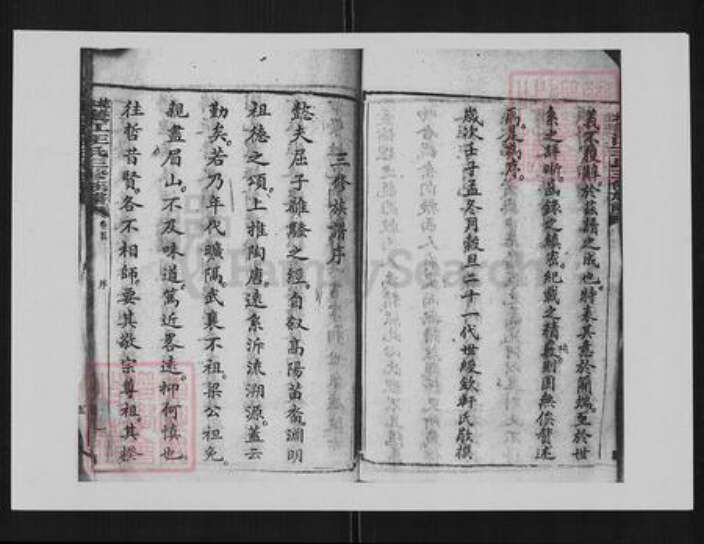 義不獲辭於茲譜之成也特表其意於簡端至於世
系之辟晰函錄之縝密紀載之精
則固無俟贅述
爲是爲序
歲次壬子孟冬月穀旦二十一代世綬欽軒氏敬撰
三修族譜序
懿夫屈子離騷之經自叙高陽苗裔淵明
祖德之頌上推陶唐遠系沂流溯源蓋云
勤矣若乃年代曠隔武襄不祖梁公祖免
親盡眉山不及味道篤近畧遠抑何慎也
往哲昔賢各不相師要其敬宗尊祖其揆
氏三修族譜
卷五
序
FamilySearch